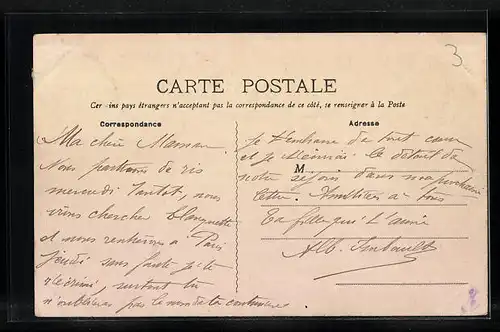 3
CARTE POSTALE
Certains pays étrangers n'acceptant pas la correspondance de ce côté, se renseigner à la Poste
Correspondance
Ma chère Maman.
Nous partirons de ris
mercredi tantot, nous
irons chercher Blanquette
et nous rentrerons a Paris
jeudi sans faute je te
surtout tu
n'oublieras pas le
Adresse
je t'embrasse de tout cœur
et je t'écrirai le détail de
M
notre séjour dans ma prochaine
lettre. a vous
ta fille qui t'aime
Alb.